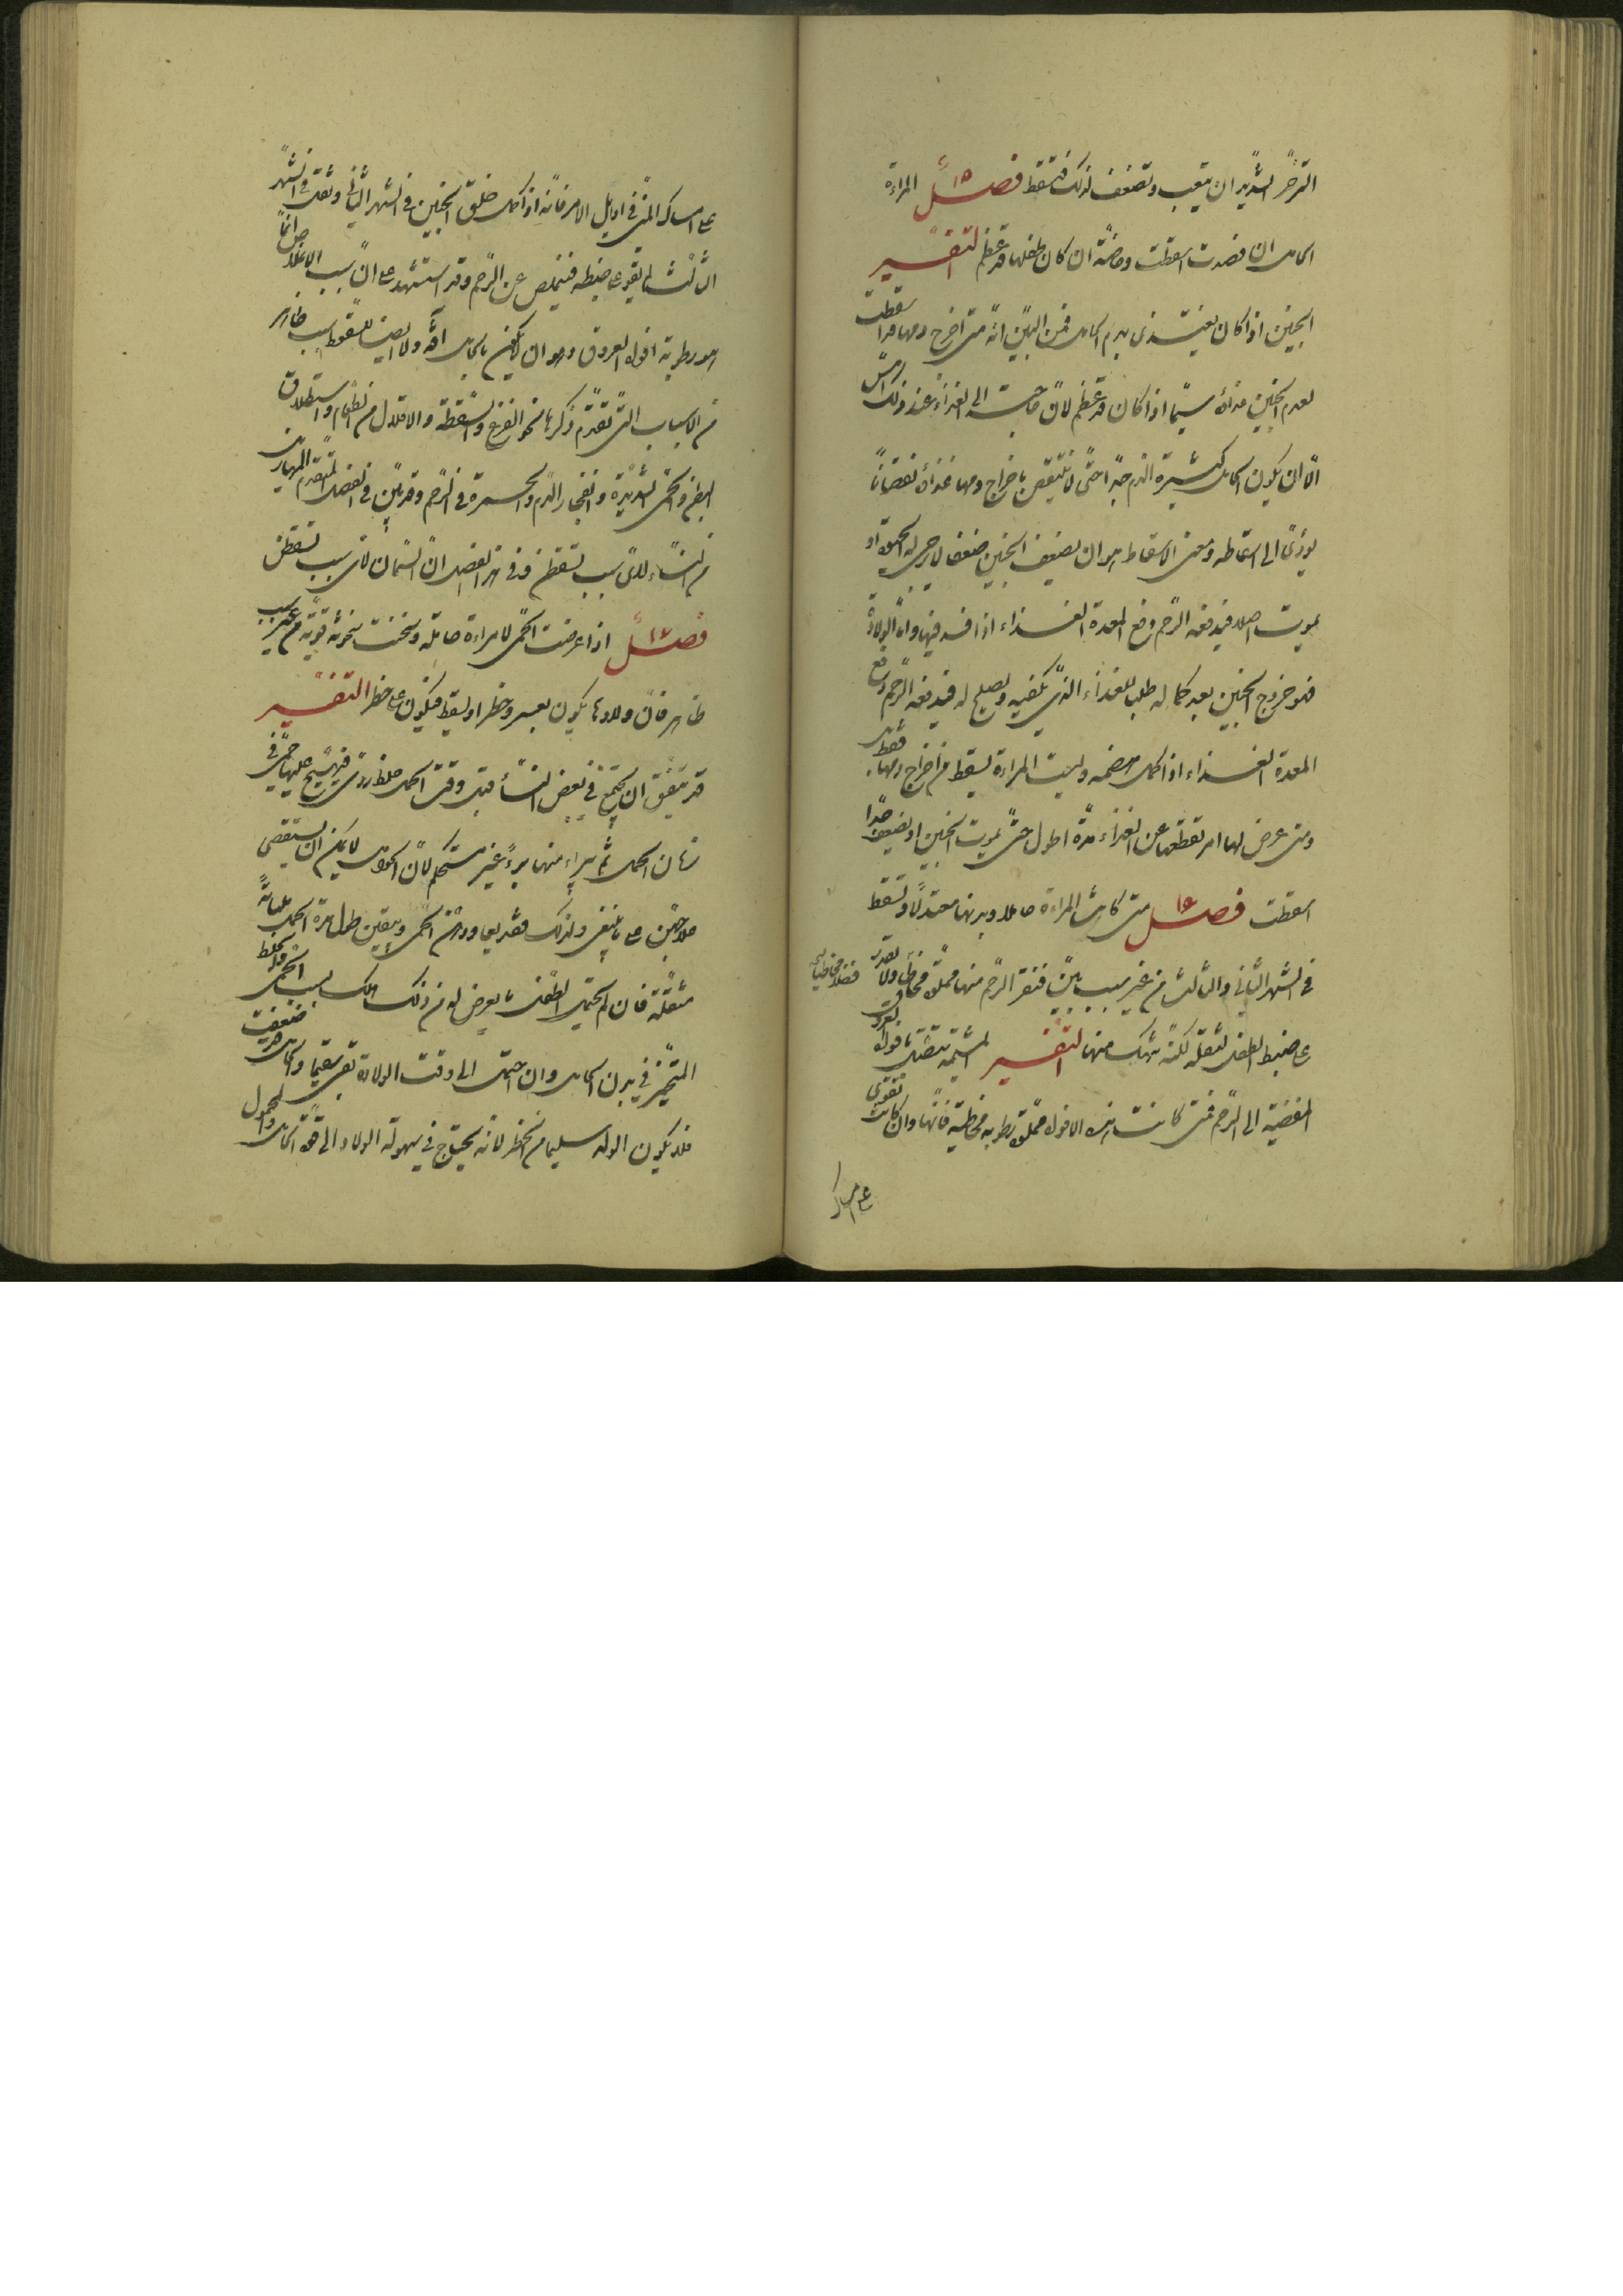 التزحر الشديد ان يتعب ويضعف لذلك فتسقط فصل ١٥ المراءة
الحامل ان فصدت اسقطت وخاصة ان كان طفلها قد عظم التفسير
الجنين اذا كان يغتذى بدم الحامل فمن البين انه متى اخرج دمها اسقطت
لعدم الجنين غذائه سيما اذا كان قد عظم لان حاجته الى الغذاء عند ذلك امس
الا ان يكون الحامل كثيرة الدم جدا حتى لا ينتقص باخراج دمها غذائه نقصانا
يؤدى الى اسقاطه ومعنى الاسقاط هو ان يضعف الجنين ضعفا لا يرجى له الحيوة او
يموت اصلا فيدفعه الرحم دفع المعدة الغذاء اذا فسد فيها واما الولادة
فهو خروج الجنين بعد كماله طلبا للغذاء الذى يكفيه ويصلح له فيدفعه الرحم دفع
المعدة الغذاء اذا كمل هضمه وليست المراءة تسقط من اخراج دمها فقط بل
ومتى عرض لها امر يقطعها عن الغذاء مدة اطول حتى يموت الجنين او يضعف جدا
اسقطت فصل ١٦ متى كانت المراءة حاملا وبدنها معتدلا وتسقط
فى الشهر الثانى والثالث من غير سبب بين فنقر الرحم منها مملوة مخاطا ولا تقدر
على ضبط الطفل لثقله لكنه ينهتك منها التفسير المشيمة تتصل بافواه العروق
المفضية الى الرحم فمتى كانت هذه الافواه مملوة رطوبة مخاطية فانها وان كانت تقوى
على امساك
على امساك المنى فى اوايل الامر فانه اذا كمل خلق الجنين فى الشهر الثانى وثقل فى الشهر
الثالث لم يقو على ضبطه فيتملص عن الرحم وقد استشهد على ان سبب الاملاص انما
هو رطوبة افواه العروق وهو ان لا يكون بالحامل آفة ولا ايضا للسقوط سبب ظاهر
من الاسباب التى تقدم ذكرها نحو الفزع والسقطة والاقلال من الطعام واستطلاق
البطن والحمى الشديدة وانفجار الدم والحمرة فى الرحم وقد بين فى الفصل المتقدم المهازيل
من النساء لاى سبب تسقطن وفى هذا الفصل ان السمان لاى سبب تسقطن
فصل ١٧ اذا عرضت الحمى لامراءة حاملة وسخنت سخونة قوية من غير سبب
ظاهر فان ولادها يكون بعسر وخطر او تسقط فيكون على خطر التفسير
قد يتفق ان يجتمع فى بعض النساء قبل وقت الحمل خلط ردى فيهيج عليها حمى فى
زمان الحمل ثم يبراء منها برءا غير مستحكم لان الحوامل لا يمكن ان يستقصى
علاجهن على ما ينبغى ولذلك قد يعاودهن الحمى ويبقين طول مدة الحمل
مثقلة فان لم يحتمل الطفل ما يعرض له من ذلك هلك بسبب الحمى والخلط
المتحيز فى بدن الحامل وان احتمل الى وقت الولادة بقى سقيما والحامل قد ضعفت
فلا يكون الولد سليما من الخطر لانه يحتاج فى سهولة الولاد الى قوة الحامل والمحمول